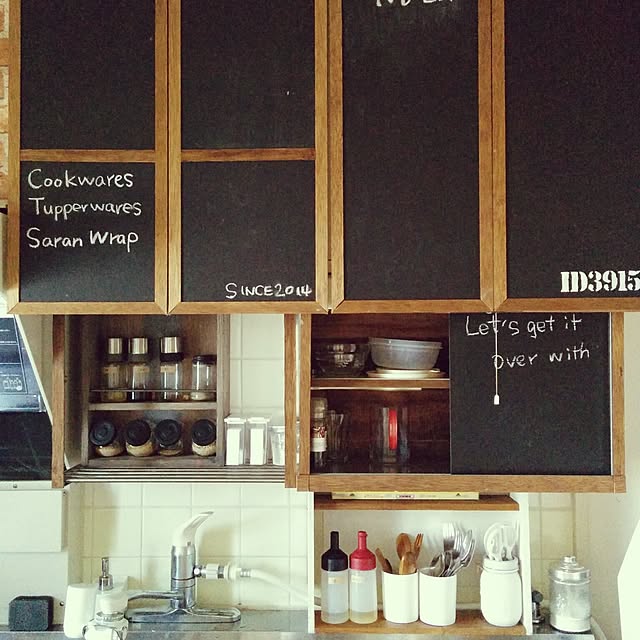 Cookwares
Tupperwares
Saran Wrap
SINCE2014
ID3915
Let's get it
over with